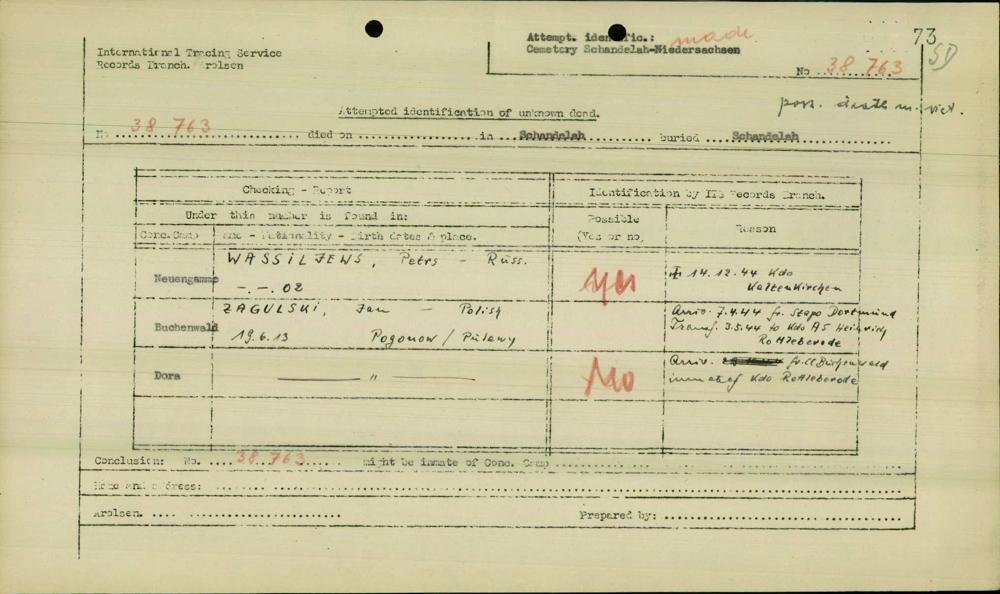 73
International Tracing Service
Records Branch. Arolsen
Attempt. identific.: made
Cemetery Schandelah-Niedersachsen
SD
No 38 763
Attempted identification of unknown dead.
No 38 763 died on in Schandelah buried Schandelah
Checking - Report
Identification by ITS Records Branch.
Under this number is found in:
Possible
(Yes or no)
Reason
Conc. Camp
Name - Nationality - Birth dates & place.
Neuengamme
WASSILJEWS, Petrs - Russ.
-.-. 02
yes
14.12.44 Kdo
Kaltenkirchen
Buchenwald
ZAGULSKI, Jan - Polish
19.6.13 Pogonow / Pulawy
Arriv. 7.4.44 fr. Stapo Dortmund
Transf. 3.5.44 to Kdo A5 Heinrich
Rottleberode
Dora
— " —
No
Arriv. fr. Cl Buchenwald
Kdo Rottleberode
Conclusion: No. 38 763 might be inmate of Conc. Camp
Name and address:
Arolsen.
Prepared by: